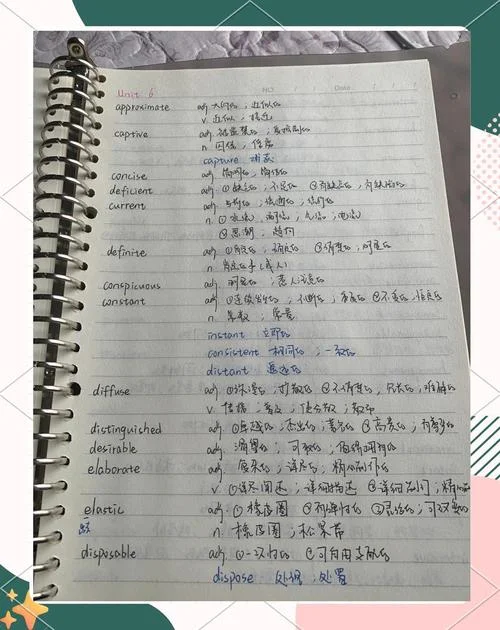 Unit 6 NO. Date
approximate adj. 大约的；近似的
v. 近似；接近
captive adj. 被监禁的；
n. 囚徒，俘虏
capture 捕获
concise adj. 简明的，简洁的
deficient adj. ①缺乏的；不足的 ②有缺点的，有缺陷的
current adj.
n. ①水流，气流；电流
②思潮，趋势
definite adj. ①肯定的；确定的 ②清楚的；明显的
n.
conspicuous adj. 明显的；惹人注意的
constant adj. ①连续发生的；不断的；②不变的，恒定的
n. 常数；常量
instant 立即的
consistent 相同的；一致的
distant 遥远的
diffuse adj. 扩散的；②不清楚的，冗长的，难解的
v. 传播；普及；使分散；散布
distinguished adj. ①卓越的；杰出的；著名的
desirable adj. 渴望的；可取的；值得拥有的
elaborate adj. 复杂的；详尽的；精心制作的
v. ①详尽阐述；详细描述 ②详细制订；精心
elastic adj. ①橡皮圈 ③灵活的；可改变的
n. 橡皮圈；松紧带
disposable adj. ①一次性的；②可自由支配的
dispose 处理；处置